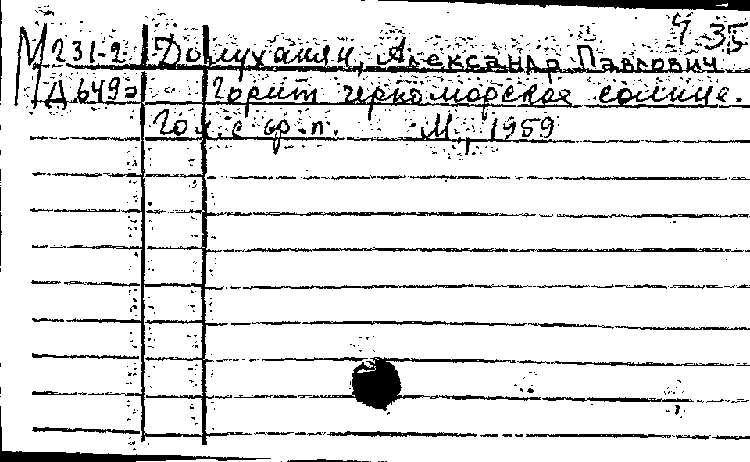 Ч 35
М 231-2 Долуханян, Александр Павлович
Д 649э Горит черноморское солнце.
Гол. с ф.-п. М., 1959